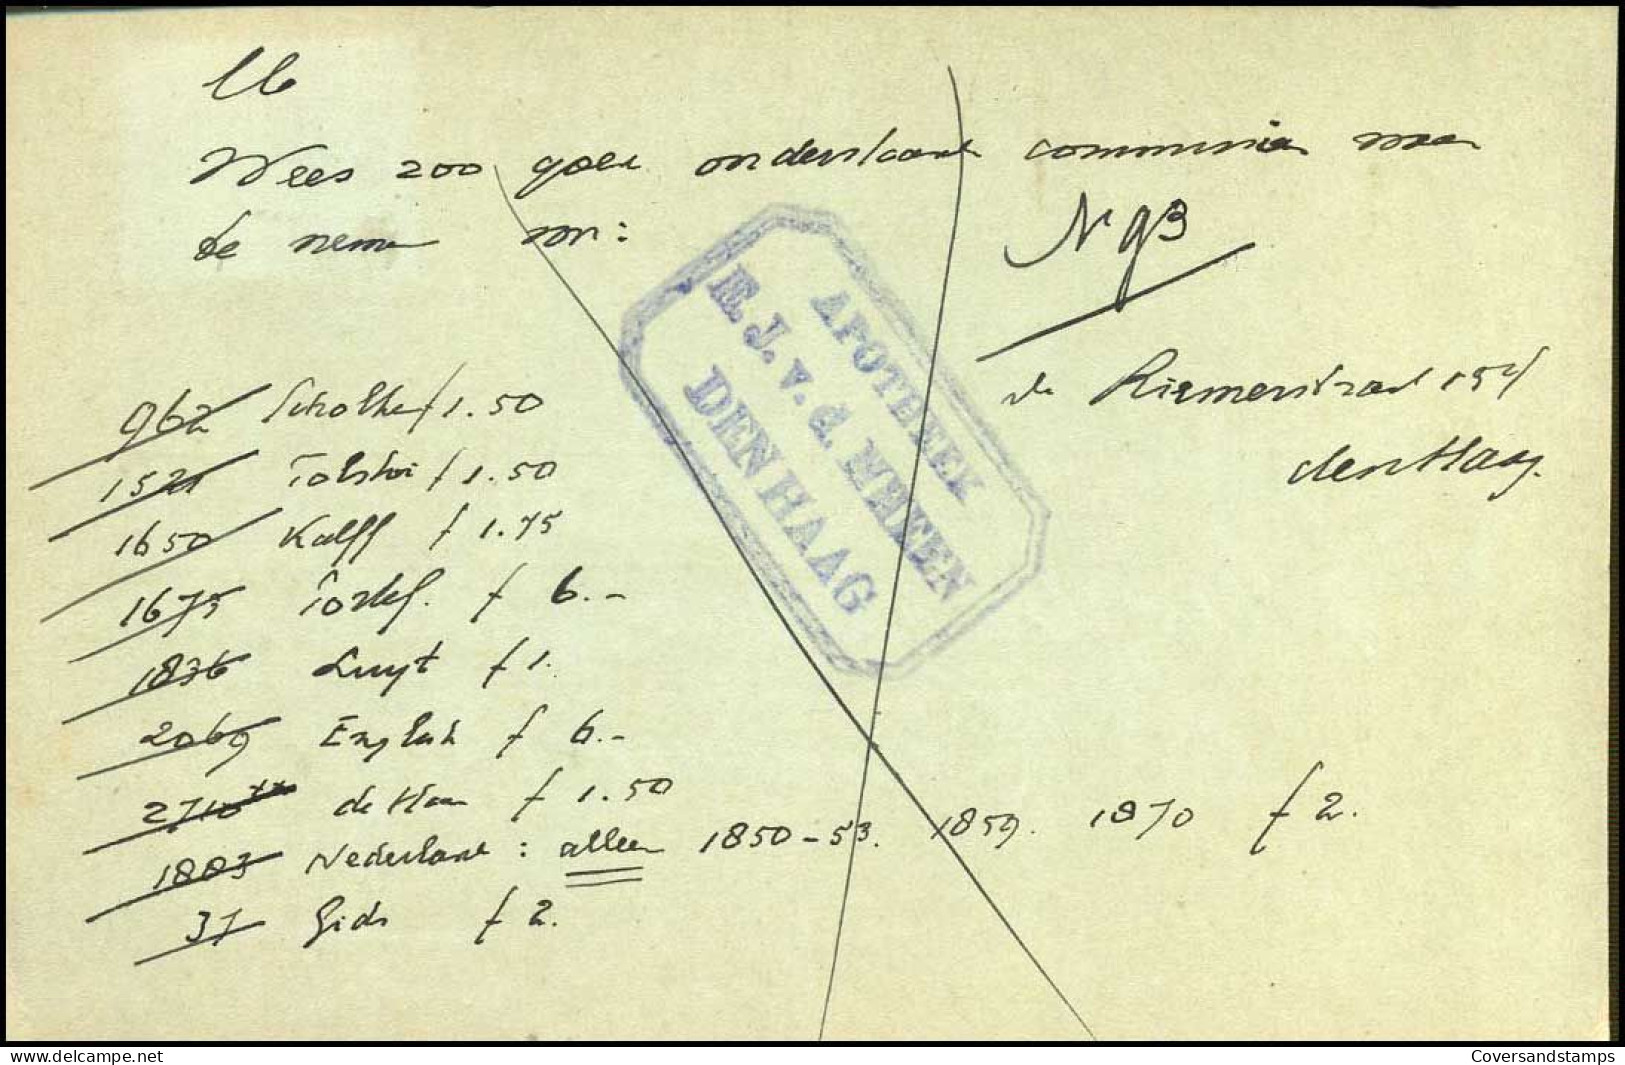 Lb
Wees zoo goed onderstaande commissies voor
te nemen voor:
N 93
APOTHEEK
E. J. v. d. MEEEN
DEN HAAG
de Riemerstraat 154
den Haag.
962 Scholten f 1.50
1521 Tolstoi f 1.50
1650 Kalff f 1.75
1675 f 6.-
1836 Luyt f 1.
2069 English f 6.-
2710 de Haan f 1.50
1883 Nederland : alleen 1850-53. 1859. 1870 f 2.
37 Gids f 2.
delcampe.net
Coversandstamps